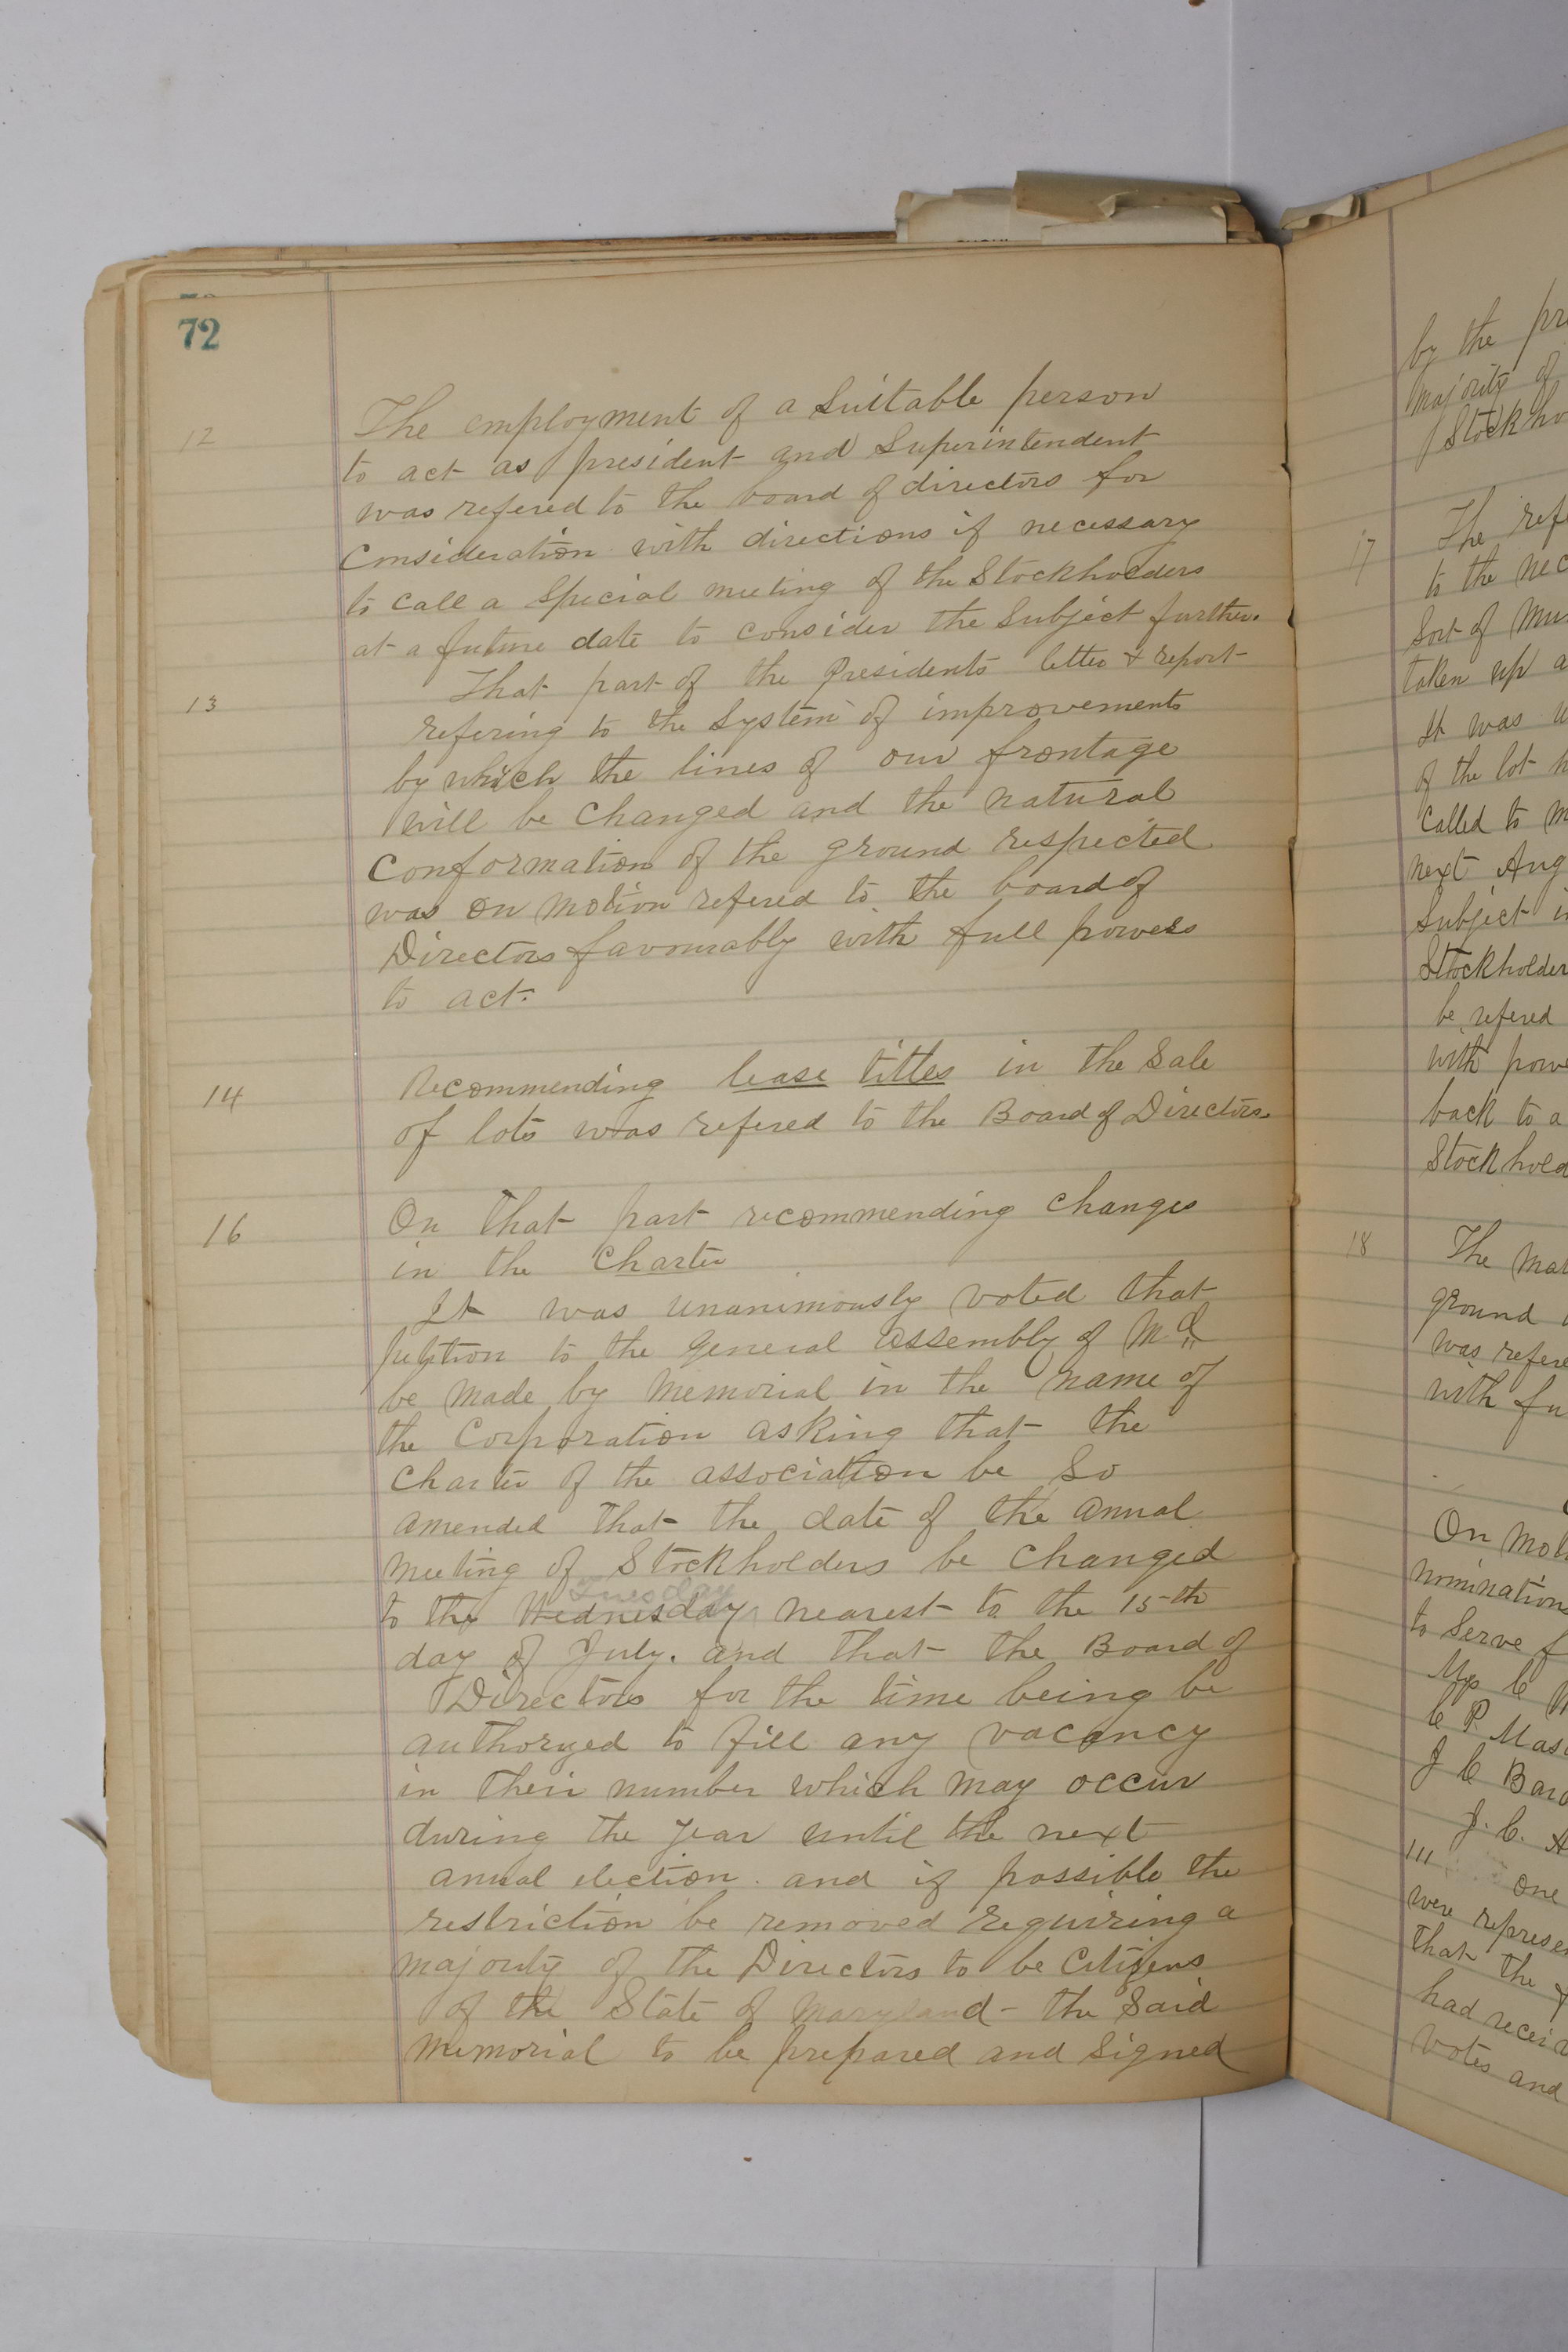 72
12
The employment of a suitable person
to act as president and Superintendent
was refered to the board of directors for
Consideration with directions if necessary
to call a Special meeting of the Stockholders
at a future date to consider the Subject further.
13
That part of the Presidents letter & report
refering to the System of improvements
by which the lines of our frontage
will be changed and the natural
conformation of the ground respected
was on motion refered to the board of
Directors favourably with full powers
to act.
14
Recommending lease titles in the Sale
of lots was refered to the Board of Directors.
16
On that part recommending changes
in the Charter
It was unanimously voted that
petition to the General Assembly of Md
be made by Memorial in the name of
the Corporation asking that the
charter of the association be so
amended that the date of the annual
meeting of Stockholders be changed
Tuesday
to the Wednesday nearest to the 15th
day of July. and that the Board of
Directors for the time being be
authoryed to fill any vacancy
in their number which may occur
during the year until the next
anual election. and if possible the
restriction be removed requiring a
majority of the Directors to be Citizens
of the State of Maryland - the Said
memorial to be prepared and signed
by the pr
majority of
Stockho
17
The refe
to the nec
Sort of Mu
taken up a
It was u
of the lot h
called to m
next Aug
subject i
Stockholder
be refered
with powe
back to a
Stockhold
18
The mat
ground
was refere
with fu
On moti
nomination
to serve f
C P Maso
J C Bar
J. C. H
111 one
were represe
that the
had receiv
votes and